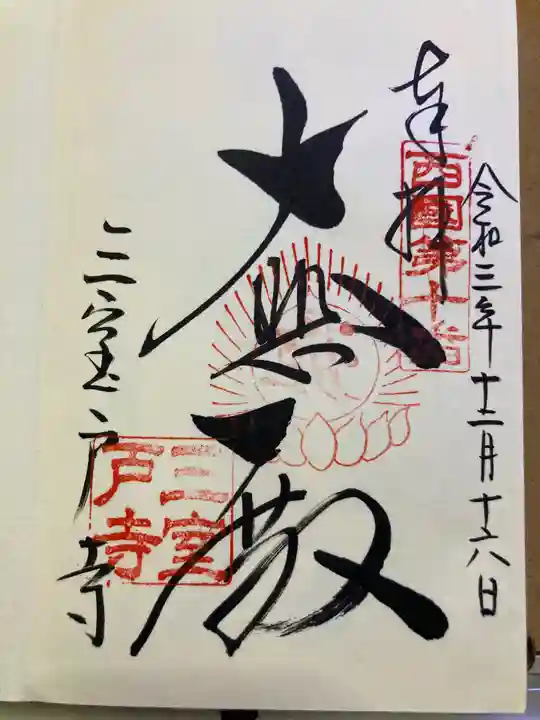 奉拝
西国第十番
令和三年十二月十六日
大悲殿
三室戸寺
三室
戸寺